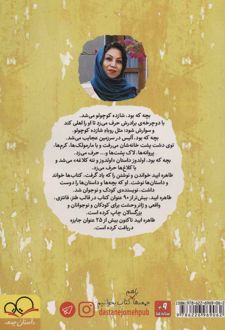 بچه که بود، شازده کوچولو می‌شد.
با دوچرخه‌ی برادرش حرف می‌زد تا او را اهلی کند
و سوارش شود؛ مثل روباه شازده کوچولو.
بچه که بود، آلیس در سرزمین عجایب می‌شد.
توی دشت پشت خانه‌شان می‌رفت و با مارمولک‌ها، کرم‌ها،
پروانه‌ها، لاک پشت‌ها و... حرف می‌زد.
بچه که بود، اولدوز داستان «اولدوز و ننه کلاغه» می‌شد و
با کلاغ‌ها حرف می‌زد.
طاهره ایبد خواندن و نوشتن را که یاد گرفت، کتاب‌ها خواند
و داستان‌ها نوشت. او که بچه‌ها و داستان‌ها را دوست
داشت، نویسنده‌ی کودک و نوجوان شد.
طاهره ایبد، بیش از ۹۰ عنوان کتاب در قالب طنز، فانتزی،
واقعی و ژانر وحشت برای کودکان و نوجوانان و
بزرگسالان چاپ کرده است.
طاهره ایبد تاکنون بیش از ۲۵ عنوان جایزه
دریافت کرده است.
باهم
جمعه‌ها کتاب بخوانیم
dastanejomehpub
داستان جمعه
+۹